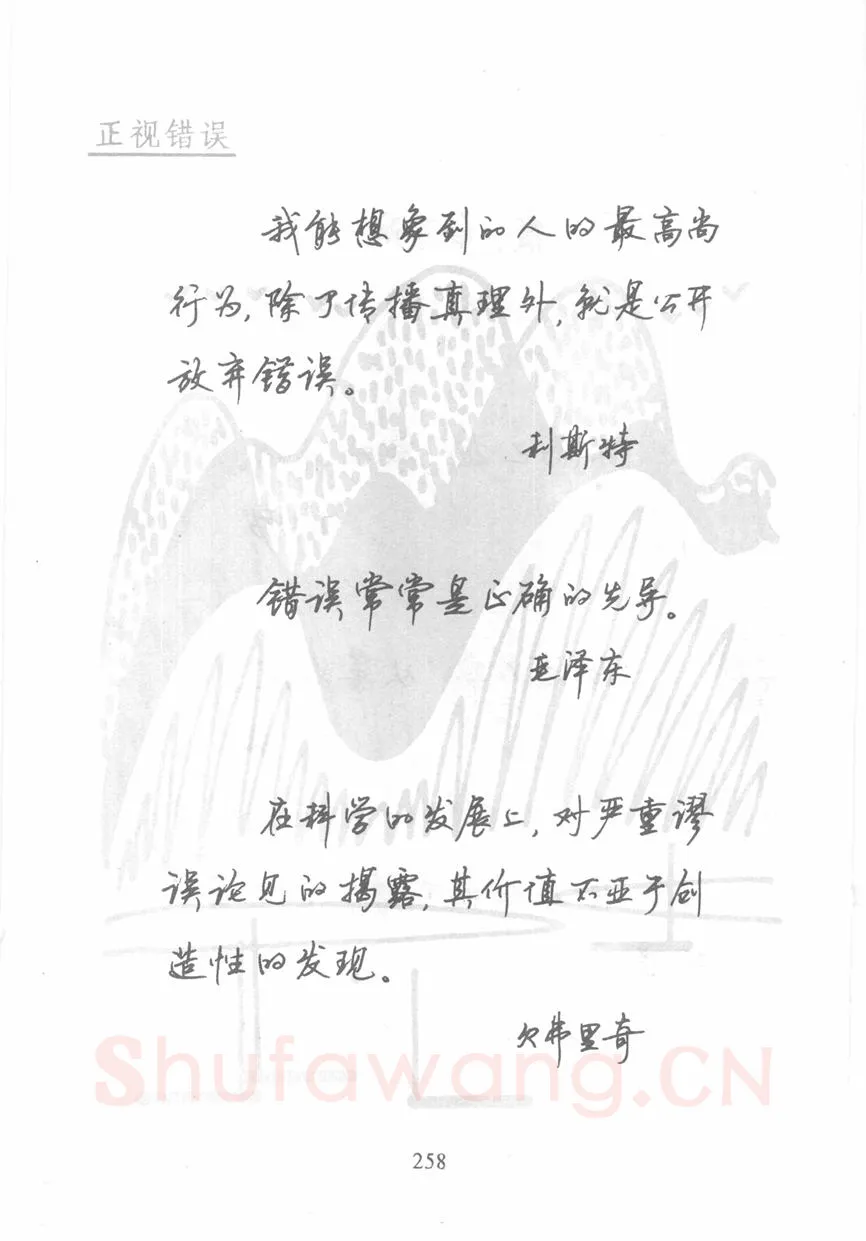 正视错误
我能想象到的人的最高尚
行为,除了传播真理外,就是公开
放弃错误。
利斯特
错误常常是正确的先导。
毛泽东
在科学的发展上,对严重谬
误论见的揭露,其价值不亚于创
造性的发现。
欠弗里奇
Shufawang.CN
258